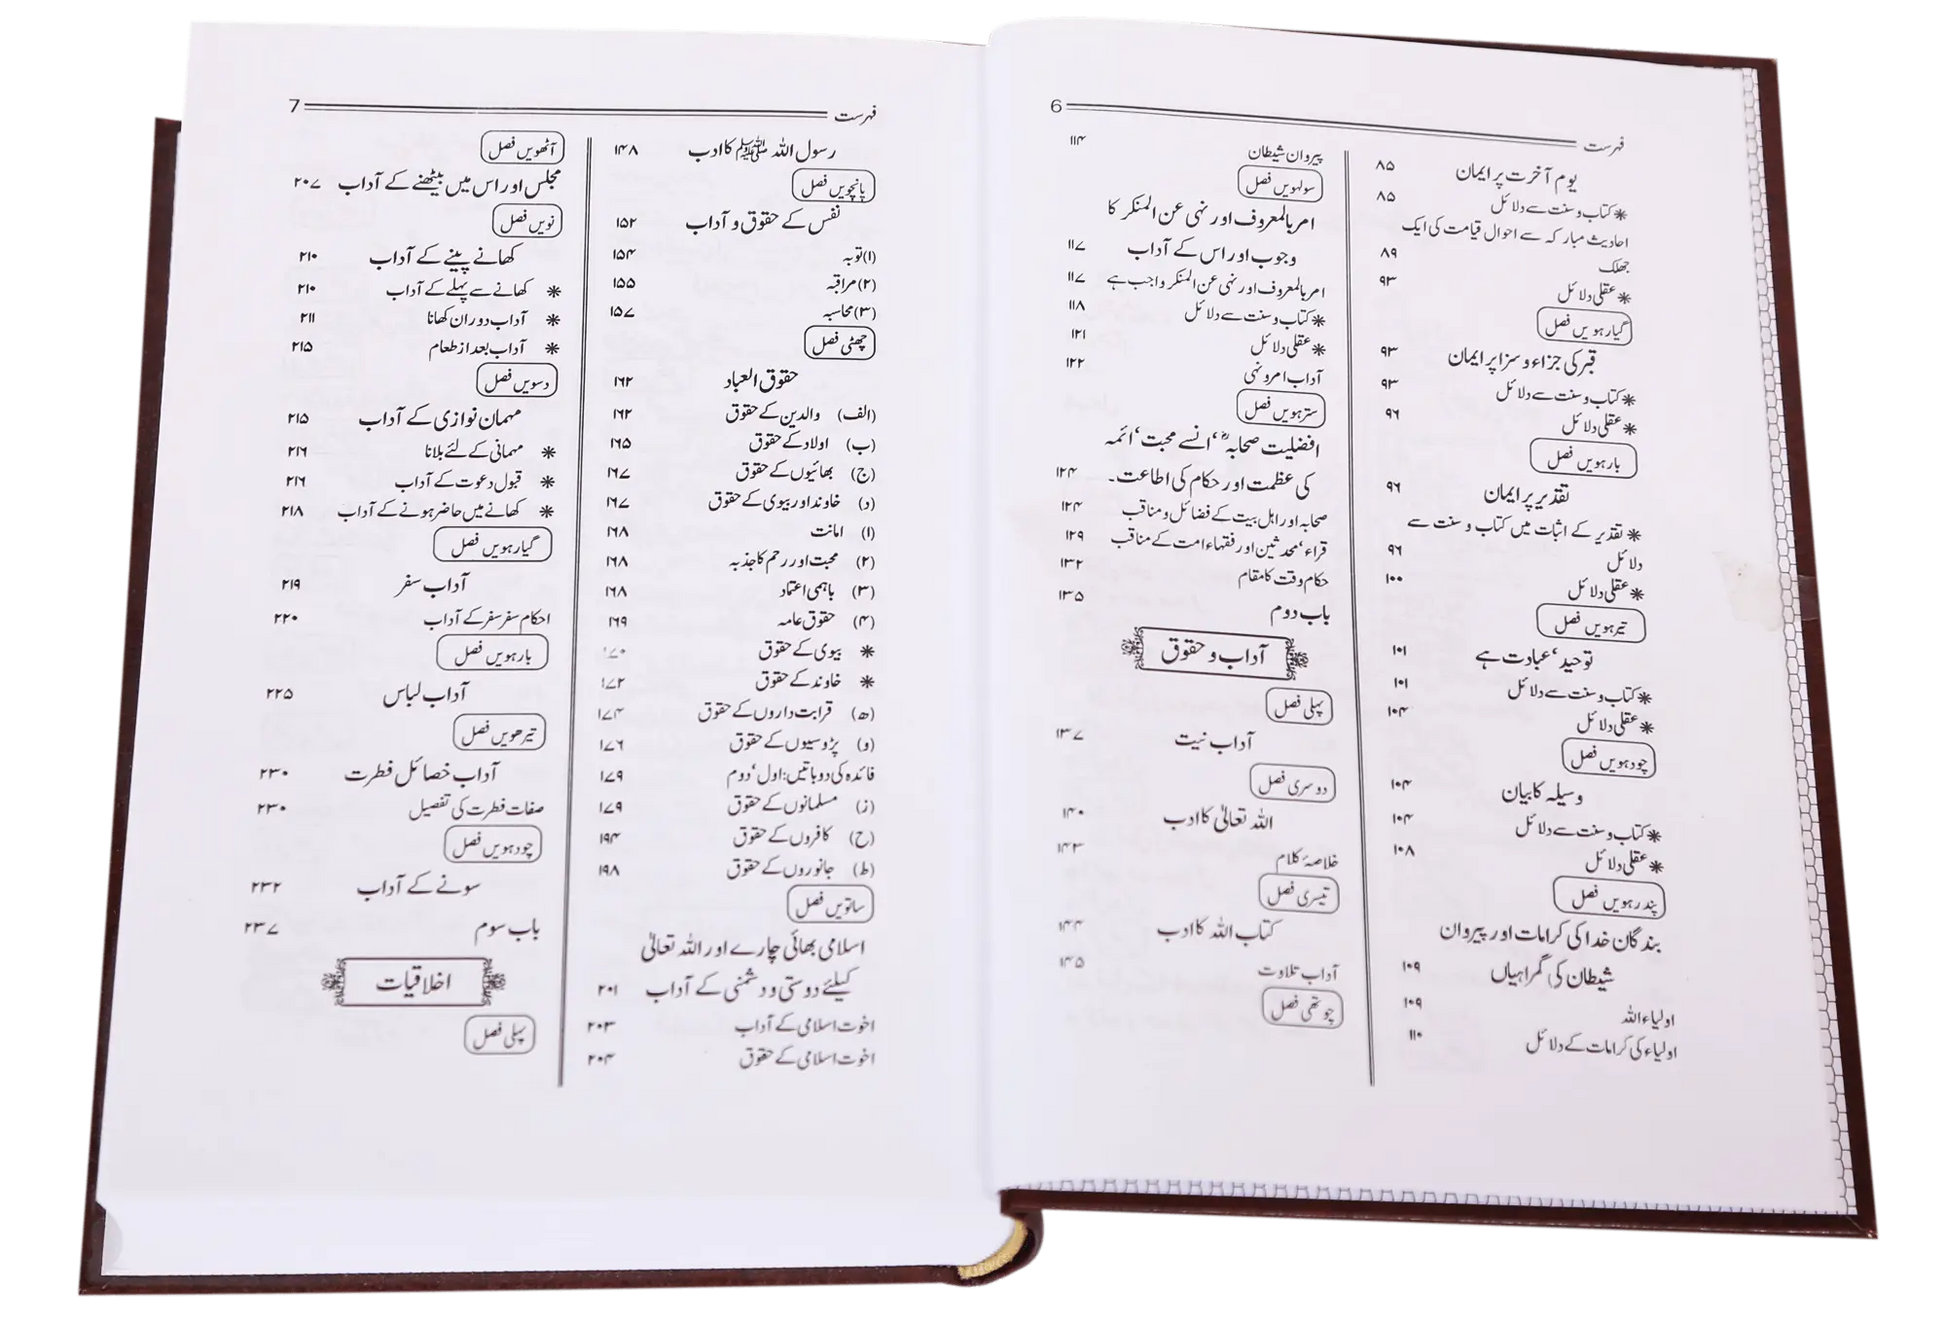 فہرست 6
یوم آخرت پر ایمان ۸۵
❋ کتاب و سنت سے دلائل ۸۵
احادیث مبارکہ سے احوال قیامت کی ایک
جھلک ۸۹
❋ عقلی دلائل ۹۳
گیارہویں فصل
قبر کی جزاء و سزا پر ایمان ۹۳
❋ کتاب و سنت سے دلائل ۹۳
❋ عقلی دلائل ۹۶
بارہویں فصل
تقدیر پر ایمان ۹۶
❋ تقدیر کے اثبات میں کتاب و سنت سے
دلائل ۹۶
❋ عقلی دلائل ۱۰۰
تیرہویں فصل
توحید ‘ عبادت ہے ۱۰۱
❋ کتاب و سنت سے دلائل ۱۰۱
❋ عقلی دلائل ۱۰۴
چودہویں فصل
وسیلہ کا بیان ۱۰۴
❋ کتاب و سنت سے دلائل ۱۰۴
❋ عقلی دلائل ۱۰۸
پندرہویں فصل
بندگان خدا کی کرامات اور پیروان
شیطان کی گمراہیاں ۱۰۹
اولیاء اللہ ۱۰۹
اولیاء کی کرامات کے دلائل ۱۱۰
پیروان شیطان ۱۱۴
سولہویں فصل
امر بالمعروف اور نہی عن المنکر کا
وجوب اور اس کے آداب ۱۱۷
امر بالمعروف اور نہی عن المنکر واجب ہے ۱۱۷
❋ کتاب و سنت سے دلائل ۱۱۸
❋ عقلی دلائل ۱۲۱
آداب امر و نہی ۱۲۲
سترہویں فصل
افضلیت صحابہؓ ‘ انسے محبت ‘ ائمہ
کی عظمت اور حکام کی اطاعت۔ ۱۲۴
صحابہ اور اہل بیت کے فضائل و مناقب ۱۲۴
قراء ‘ محدثین اور فقہاء امت کے مناقب ۱۲۹
حکام وقت کا مقام ۱۳۲
باب دوم ۱۳۵
آداب و حقوق
پہلی فصل
آداب نیت ۱۳۷
دوسری فصل
اللہ تعالیٰ کا ادب ۱۴۰
خلاصۂ کلام ۱۴۳
تیسری فصل
کتاب اللہ کا ادب ۱۴۴
آداب تلاوت ۱۴۵
چوتھی فصل
فہرست 7
رسول اللہ ﷺ کا ادب ۱۴۸
پانچویں فصل
نفس کے حقوق و آداب ۱۵۲
(۱) توبہ ۱۵۴
(۲) مراقبہ ۱۵۵
(۳) محاسبہ ۱۵۷
چھٹی فصل
حقوق العباد ۱۶۲
(الف) والدین کے حقوق ۱۶۲
(ب) اولاد کے حقوق ۱۶۵
(ج) بھائیوں کے حقوق ۱۶۷
(د) خاوند اور بیوی کے حقوق ۱۶۷
(۱) امانت ۱۶۸
(۲) محبت اور رحم کا جذبہ ۱۶۸
(۳) باہمی اعتماد ۱۶۸
(۴) حقوق عامہ ۱۶۹
❋ بیوی کے حقوق ۱۷۰
❋ خاوند کے حقوق ۱۷۲
(ھ) قرابت داروں کے حقوق ۱۷۴
(و) پڑوسیوں کے حقوق ۱۷۶
فائدہ کی دو باتیں: اول ‘ دوم ۱۷۹
(ز) مسلمانوں کے حقوق ۱۷۹
(ح) کافروں کے حقوق ۱۹۴
(ط) جانوروں کے حقوق ۱۹۸
ساتویں فصل
اسلامی بھائی چارے اور اللہ تعالیٰ
کیلئے دوستی و دشمنی کے آداب ۲۰۱
اخوت اسلامی کے آداب ۲۰۳
اخوت اسلامی کے حقوق ۲۰۴
آٹھویں فصل
مجلس اور اس میں بیٹھنے کے آداب ۲۰۷
نویں فصل
کھانے پینے کے آداب ۲۱۰
❋ کھانے سے پہلے کے آداب ۲۱۰
❋ آداب دوران کھانا ۲۱۱
❋ آداب بعد از طعام ۲۱۵
دسویں فصل
مہمان نوازی کے آداب ۲۱۵
❋ مہمانی کے لئے بلانا ۲۱۶
❋ قبول دعوت کے آداب ۲۱۶
❋ کھانے میں حاضر ہونے کے آداب ۲۱۸
گیارہویں فصل
آداب سفر ۲۱۹
احکام سفر سفر کے آداب ۲۲۰
بارہویں فصل
آداب لباس ۲۲۵
تیرھویں فصل
آداب خصائل فطرت ۲۳۰
صفات فطرت کی تفصیل ۲۳۰
چودہویں فصل
سونے کے آداب ۲۳۲
باب سوم ۲۳۷
اخلاقیات
پہلی فصل